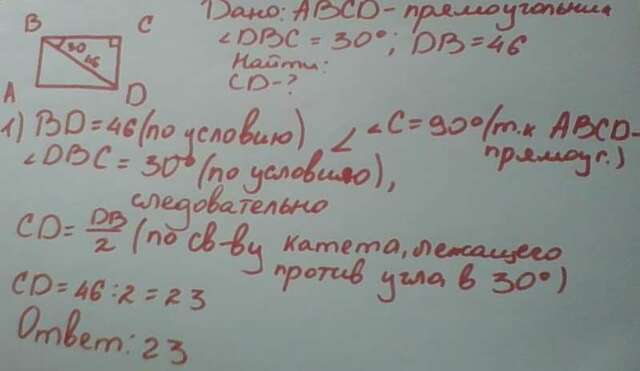 Дано: ABCD - прямоугольник
∠DBC = 30°; DB = 46
Найти:
CD - ?
B C
30
46
A D
1) BD = 46 (по условию) ∠ ∠C = 90° (т.к ABCD-
прямоуг.)
∠DBC = 30° (по условию),
следовательно
CD = DB/2 (по св-ву катета, лежащего
против угла в 30°)
CD = 46 : 2 = 23
Ответ: 23